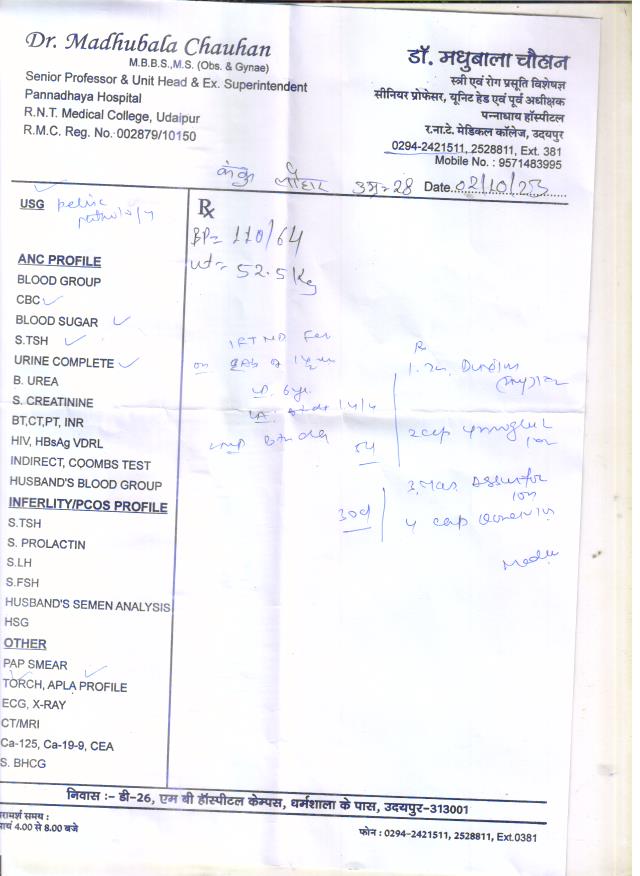 Dr. Madhubala Chauhan
M.B.B.S.,M.S. (Obs. & Gynae)
Senior Professor & Unit Head & Ex. Superintendent
Pannadhaya Hospital
R.N.T. Medical College, Udaipur
R.M.C. Reg. No. 002879/10150
डॉ. मधुबाला चौहान
स्त्री एवं रोग प्रसूति विशेषज्ञ
सीनियर प्रोफेसर, यूनिट हेड एवं पूर्व अधीक्षक
पन्नाधाय हॉस्पीटल
र.ना.टे. मेडिकल कॉलेज, उदयपुर
0294-2421511, 2528811, Ext. 381
Mobile No. : 9571483995
लौहार उम्र-28 Date 02/10/23
USG pelvic
ANC PROFILE
BLOOD GROUP
CBC
BLOOD SUGAR
S.TSH
URINE COMPLETE
B. UREA
S. CREATININE
BT,CT,PT, INR
HIV, HBsAg VDRL
INDIRECT, COOMBS TEST
HUSBAND'S BLOOD GROUP
INFERLITY/PCOS PROFILE
S.TSH
S. PROLACTIN
S.LH
S.FSH
HUSBAND'S SEMEN ANALYSIS
HSG
OTHER
PAP SMEAR
TORCH, APLA PROFILE
ECG, X-RAY
CT/MRI
Ca-125, Ca-19-9, CEA
S. BHCG
Rx
BP= 110/64
wt= 52.5 Kg
1 FTND
6 yr
Rx
1.
2 cap
3.
30d
4 cap
निवास :- डी-26, एम बी हॉस्पीटल केम्पस, धर्मशाला के पास, उदयपुर-313001
समय :
4.00 से 8.00 बजे
फोन : 0294-2421511, 2528811, Ext.0381